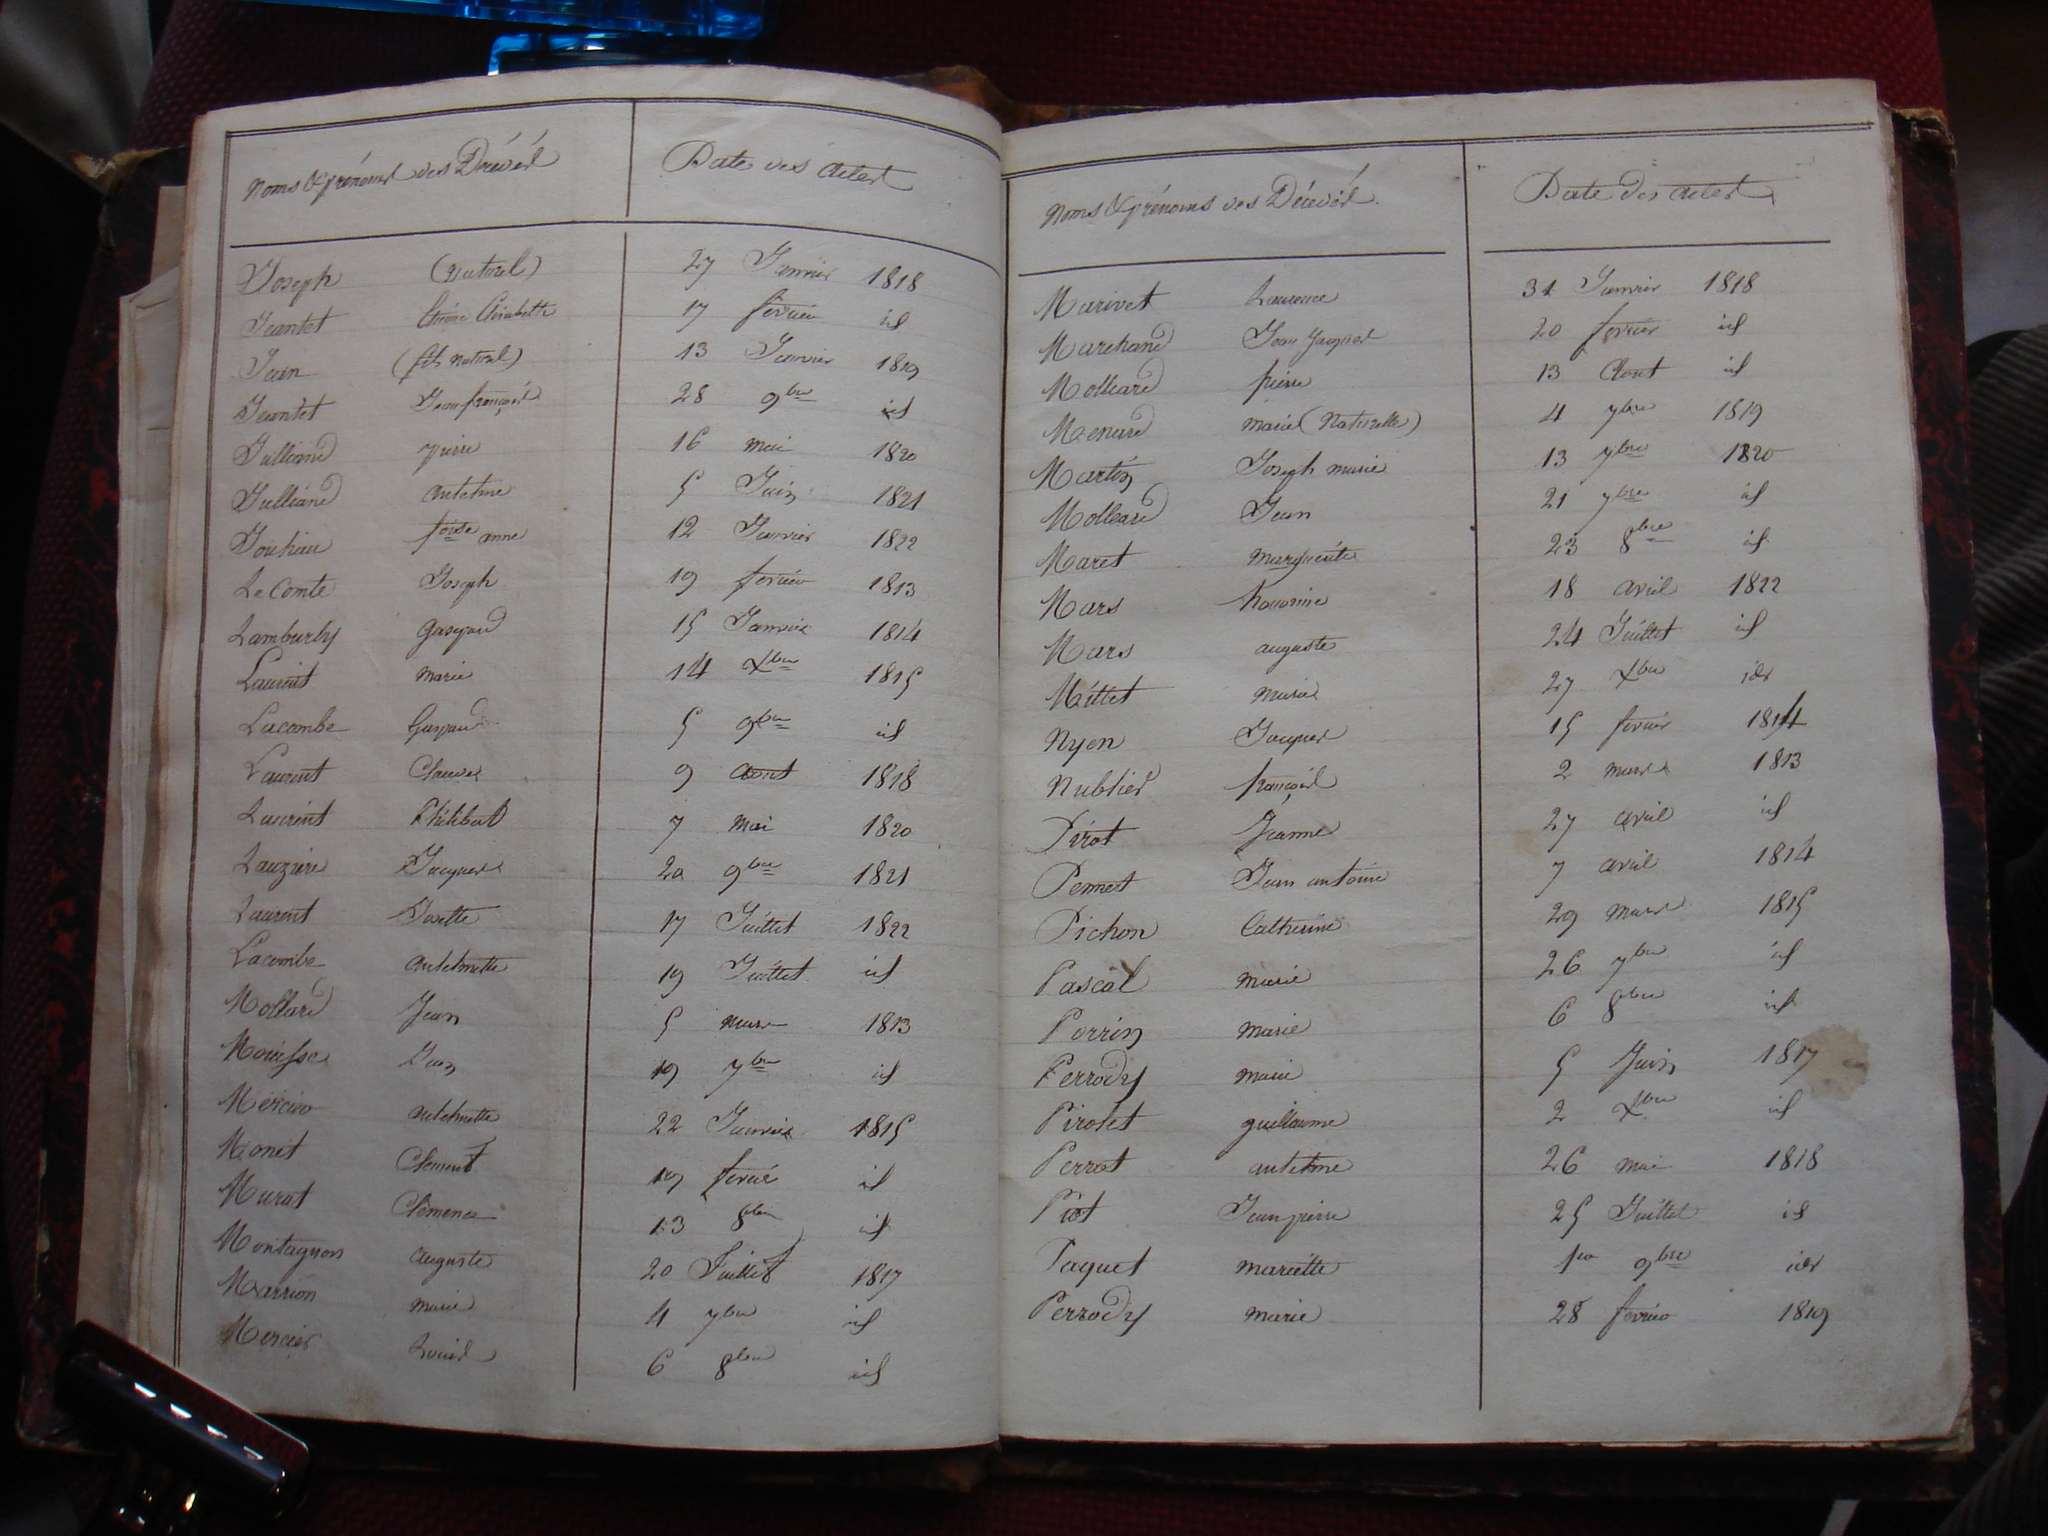 Noms & prénoms des Décédés Date des actes
Joseph (Naturel) 27 Janvier 1818
Jeantet Elisabeth 17 février id
Jean (fils naturel) 13 Janvier 1819
Jeantet Jean françois 28 9bre id
Julliand pierre 16 mai 1820
Julliand antelme 5 Juin 1821
anne 12 Janvier 1822
Le Comte Joseph 19 février 1813
Gaspard 15 Janvier 1814
Laurent marie 14 Xbre 1815
Lacombe Gaspard 5 9bre id
Laurent Claude 9 aout 1818
Laurent Philibert 7 mai 1820
Lauzière Jacques 20 9bre 1821
Laurent Josette 17 Juillet 1822
Lacombe antelmette 19 Juillet id
Mollard Jean 5 mars 1813
Jean 19 7bre id
Mercier antelmette 22 Janvier 1815
Monet Clement 19 février id
Murat Clémence 13 8bre id
Montagnon auguste 20 Juillet 1817
Marrion marie 4 7bre id
Mercier Louise 6 8bre id
Noms & prénoms des Décédés Date des actes
Marivet Laurence 31 Janvier 1818
Marchand Jean Jacques 20 fevrier id
Molleard pierre 13 Aout id
Menard marie (Naturelle) 4 7bre 1819
Martin Joseph marie 13 7bre 1820
Molleard Jean 21 7bre id
Maret marguerite 23 8bre id
Mars honorine 18 avril 1822
Mars auguste 24 Juillet id
Millet marie 27 Xbre id
Nyon Jacques 15 fevrier 1814
Nublier françois 2 mars 1813
Pirot Jeanne 27 avril id
Jean antoine 7 avril 1814
Pichon Catherine 29 mars 1815
Pascal marie 26 7bre id
Perrin marie 6 8bre id
Perrody marie 5 Juin 1817
Pirolet guillaume 2 Xbre id
Perrot antelme 26 mai 1818
Piot Jean pierre 25 Juillet id
Paquet mariette 1er 9bre id
Perrody marie 28 février 1819